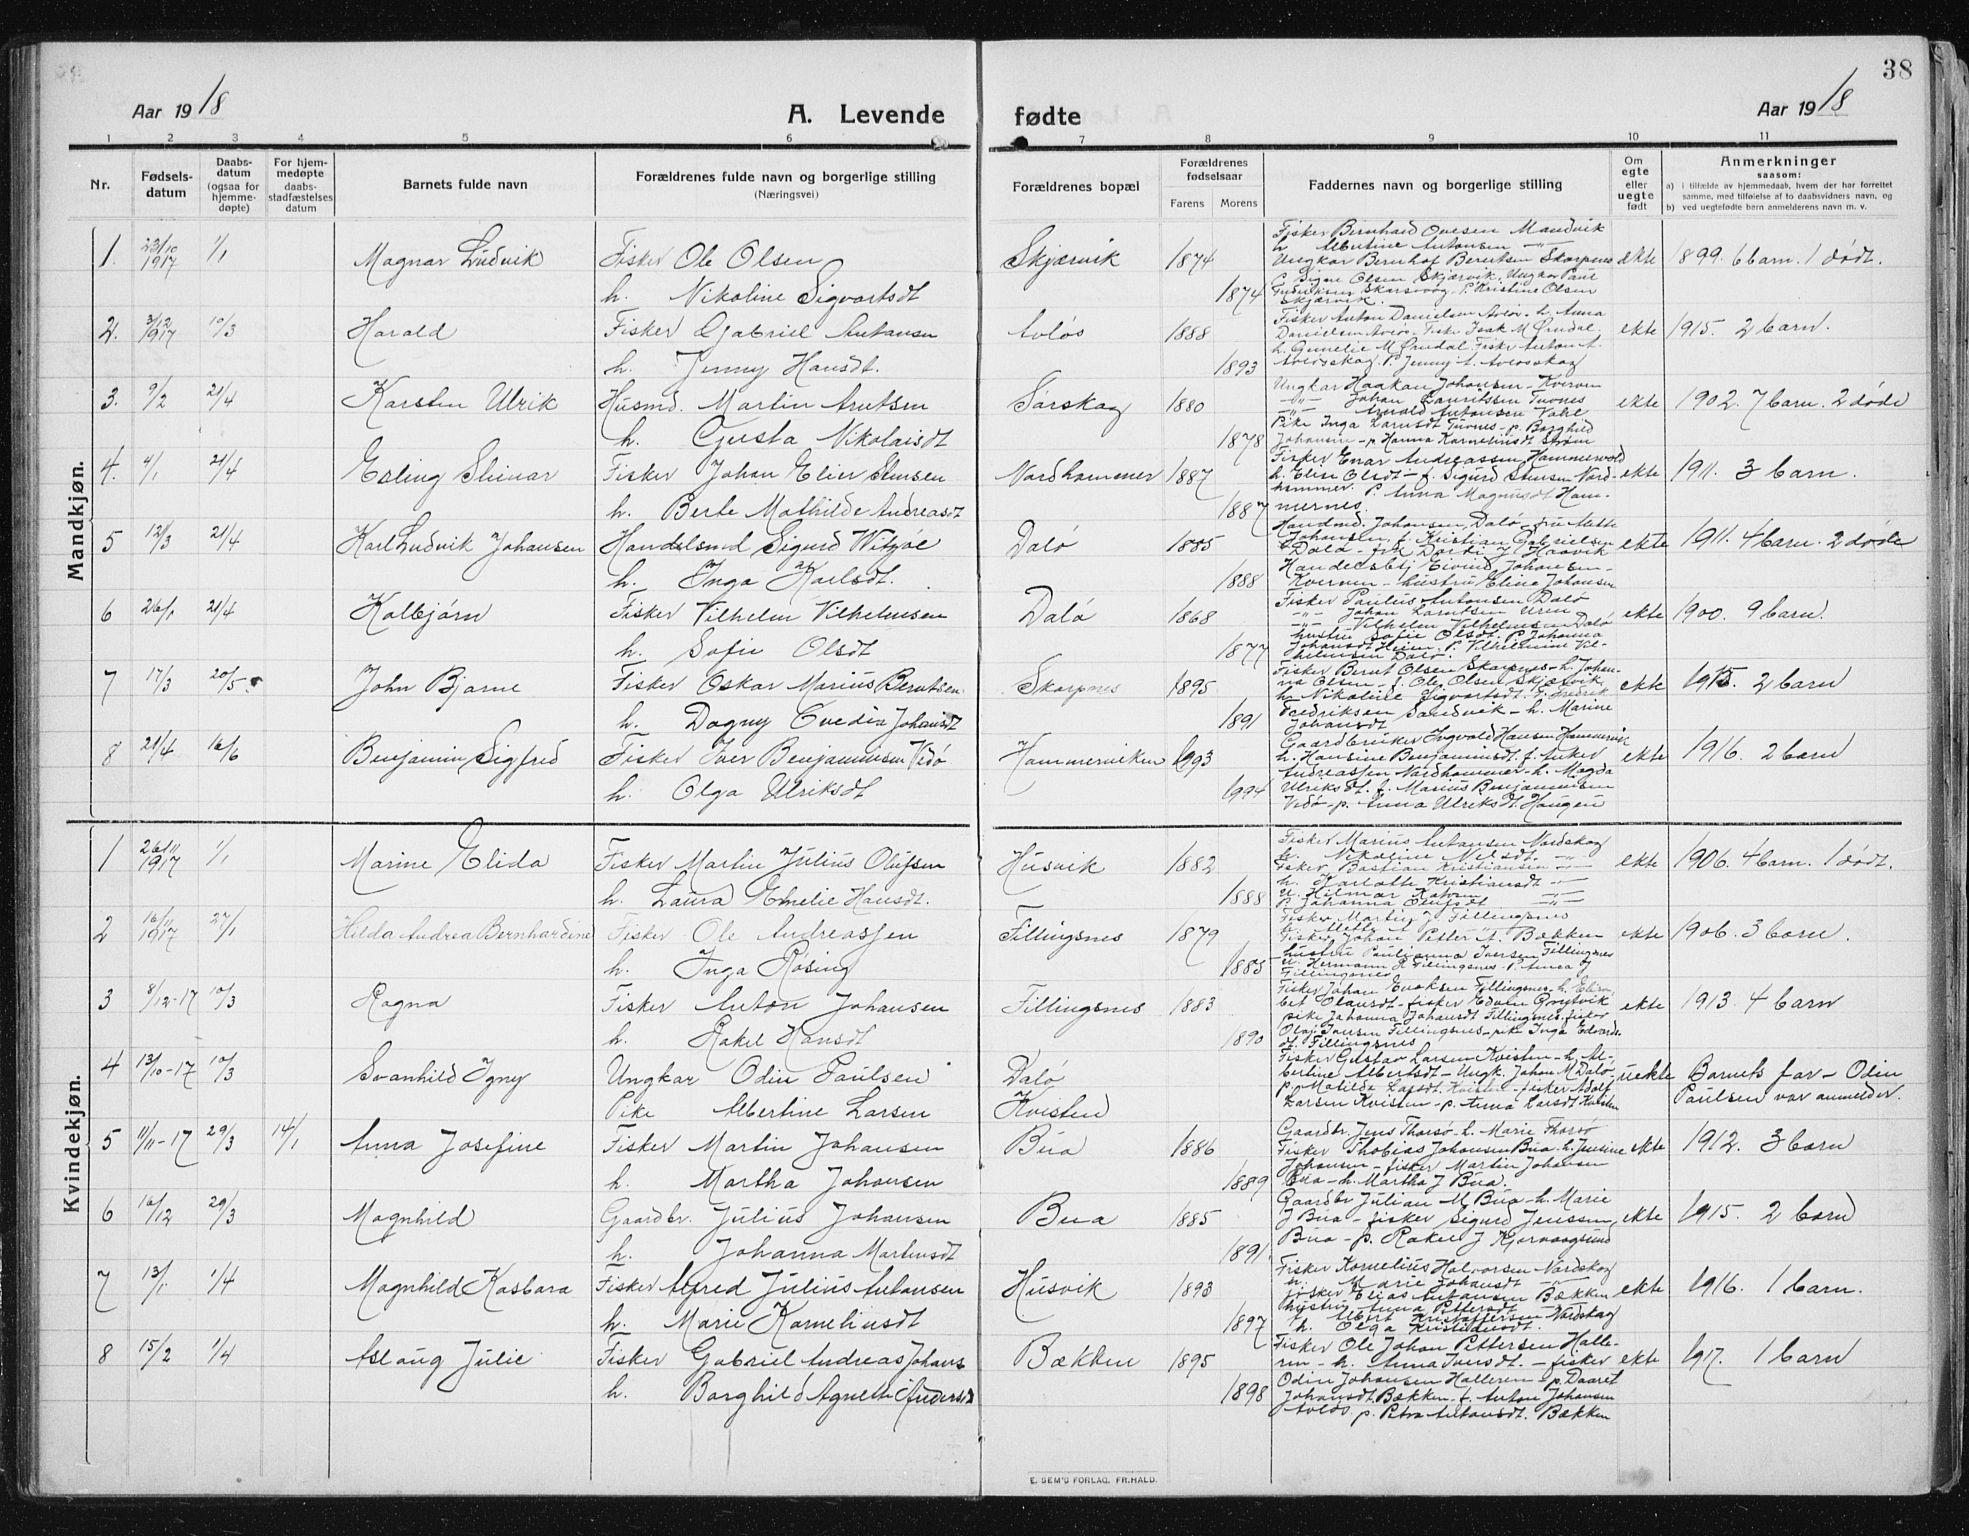 38
Aar 1918 A. Levende fødte Aar 1918
1 2 3 4 5 6 7 8 9 10 11
Nr. Fødselsdatum Daabsdatum (ogsaa for hjemmedøpte) For hjemmedøpte daabsstadfæstelses datum Barnets fulde navn Forældrenes fulde navn og borgerlige stilling (Næringsvei) Forældrenes bopæl Forældrenes fødselsaar Farens Morens Faddernes navn og borgerlige stilling Om egte eller uegte født Anmerkninger saasom: a) i tilfælde av hjemmedaab, hvem der har forrettet samme, med tilføielse af to daabsvidners navn, og b) ved uegtefødte barn anmelderens navn m. v.
Mandkjøn.
1. 23/10 1917 1/1 Magnar Ludvik Fisker Ole Olsen Skjærvik 1874 ekte 1899. 6 barn. 1 dødt.
Fisker Bernhard Ovesen Mandvik
h. Albertine Antonsen -"-
h. Nikoline Sigvartsdt 1874
Skjærvik.
2. 3/12 1917 10/3 Harald Fisker Gabriel Antonsen Avløs 1888 ekte 1915. 2 barn.
Fisker Anton Danielsen Avløs - h. Anna
h. Jenny Hansdt. 1893
3. 9/2 21/4 Karsten Ulrik Husmd. Martin Arntsen Sørskag 1880 ekte 1902. 7 barn. 2 døde
Ungkar Haakan Johansen - Kverven
-"- Johan Lauritssen Tuvnes
h. Gjersta Nikolaisdt 1878
4. 4/1 21/4 Erling Steinar Fisker Johan Elier Stensen Nordhammer 1887 ekte 1911. 3 barn.
Fisker Enar Andreassen Hammervold
h. Elise Olsdt - f. Sigurd Stensen Nord-
hammer. P. Anna Magnusdt Ham-
h. Berte Mathilde Andreasdt 1887 mernes.
5 12/3 21/4 Karl Ludvik Johansen Handelsmd Sigurd Witsøe Dalø 1885 ekte 1911. 4 barn. 2 døde
Handmd. Johansen, Dalø - fru Mette
Johansen, f. Kristian Gabrielsen
h. Inga Karlsdt. 1888
Kvernen - hustru Eline Johansen
6 26/1 21/4 Kolbjørn Fisker Vilhelm Vilhelmsen Dalø 1868 ekte 1900. 9 barn.
Fisker Paulus Antonsen Dalø
-"- Vilhelm Vilhelmsen Dalø
hustru Sofie Olsdt. P. Johanna
h. Sofie Olsdt 1877
7 17/3 20/5 John Bjarne Fisker Oskar Marius Berntsen Skarpnes 1895 ekte 1915. 2 barn
Fisker Bernt Olsen Skarpnes - h. Johan-
na Olsen - f. Ole Olsen Skjærvik,
h. Nikoline Sigvartsdt. F. Fredrik
h. Dagny Ovedia Johansdt 1891 Fredriksen Sandvik - h. Marine
Johansdt
8 21/4 16/6 Benjamin Sigfred Fisker Iver Benjaminsen Vedø Hammerviken 1993 ekte 1916. 2 barn
Gaardbruker Ingvald Hansen Hammervik
h. Hansine Benjaminsdt. f. Anker
Andreassen Nordhammer - h. Magda
h. Olga Ulriksdt 1994 Ulriksdt. f. Marius Benjaminsen
Vedø - p. Anna Ulriksdt. Haugen
Kvindekjøn.
1 26/11 1917 1/1 Marine Elida Fisker Martin Julius Olufsen Husvik 1882 ekte 1906. 4 barn. 1 dødt.
Fisker Marius Antonsen Nordskag
h. Nikoline Nilsdt. -"-
Fisker Bastian Kristiansen -"-
h. Laura Emelie Hansdt. 1888
P. Johanna Olufsdt -"-
2 16/11 1917 27/1 Hilda Andrea Bernhardine Fisker Ole Andreassen Fillingsnes 1879 ekte 1906. 3 barn.
Fisker Martin J. Fillingsnes
Fisker Johan Petter A. Bækken
h. Inga Røsing 1885 hustru Paulianna Iversen Fillingsnes
Fillingsnes
3 8/12-17 10/3 Ragna Fisker Anton Johansen Fillingsnes 1883 ekte 1913. 4 barn
Fisker Johan Enoksen Fillingsnes - h. Elisa-
pike Johanna Johansdt Fillingsnes. fisker
h. Rakel Hansdt 1890 Olaf Jensen Fillingsnes - pike Inga Edvards-
dt. Fillingsnes
4 13/10-17 10/3 Svanhild Igny Ungkar Odin Paulsen Dalø uekte Barnets far - Odin
Fisker Gustav Larsen Kvisten - h. Al-
bertine Albertsdt - Ungk. Johan M. Dalø
p. Matilde Larsdt. Kvisten - fisker Adolf
Pike Albertine Larsen Kvisten Larsen Kvisten - p. Anna Larsdt Kvisten Paulsen var anmelder.
5 11/11-17 29/3 14/1 Anna Josefine Fisker Martin Johansen Bua 1886 ekte 1912. 3 barn
Gaardbr. Jens Thorsø - h. Marie Thorsø
Fisker Thobias Johansen Bua - h. Jensine
Johansen - fisker Martin Johansen
h. Martha Johansen 1889 Bua - h. Martha J Bua.
6 16/12 29/3 Magnhild Gaardbr. Julius Johansen Bua 1885 ekte 1915 2 barn
Gaardbr Julian M Bua - h. Marie
J Bua - fisker Sigurd Jenssen,
h. Johanna Martinsdt 1891 Bua - p. Rakel J Kjervaagsund
7 13/1 1/4 Magnhild Kasbara Fisker Alfred Julius Antonsen Husvik 1893 ekte 1916. 1 barn.
Fisker Kornelius Halvorsen Nordskag
h. Marie Johansdt -"-
fisker Elias Antonsen Bækken
hustru Anna Pettersdt
h. Marie Korneliusdt 1897 f. Albert Kristoffersen Nordskag
h. Olga Kristiansdt.
8 15/2 1/4 Aslaug Julie Fisker Gabriel Andreas Johans Bækken 1895 ekte 1917. 1 barn
Fisker Ole Johan Pettersen Halle-
ren - h. Anna Iversdt. - fisker
h. Borghild Agnethe Andersdt 1898 Odin Johansen Halleren - p. Daaret
Johansdt Bækken - f. Anton Johansen
Avløs p. Petra Antonsdt. Bækken
E. SEM'S FORLAG, FR.HALD.